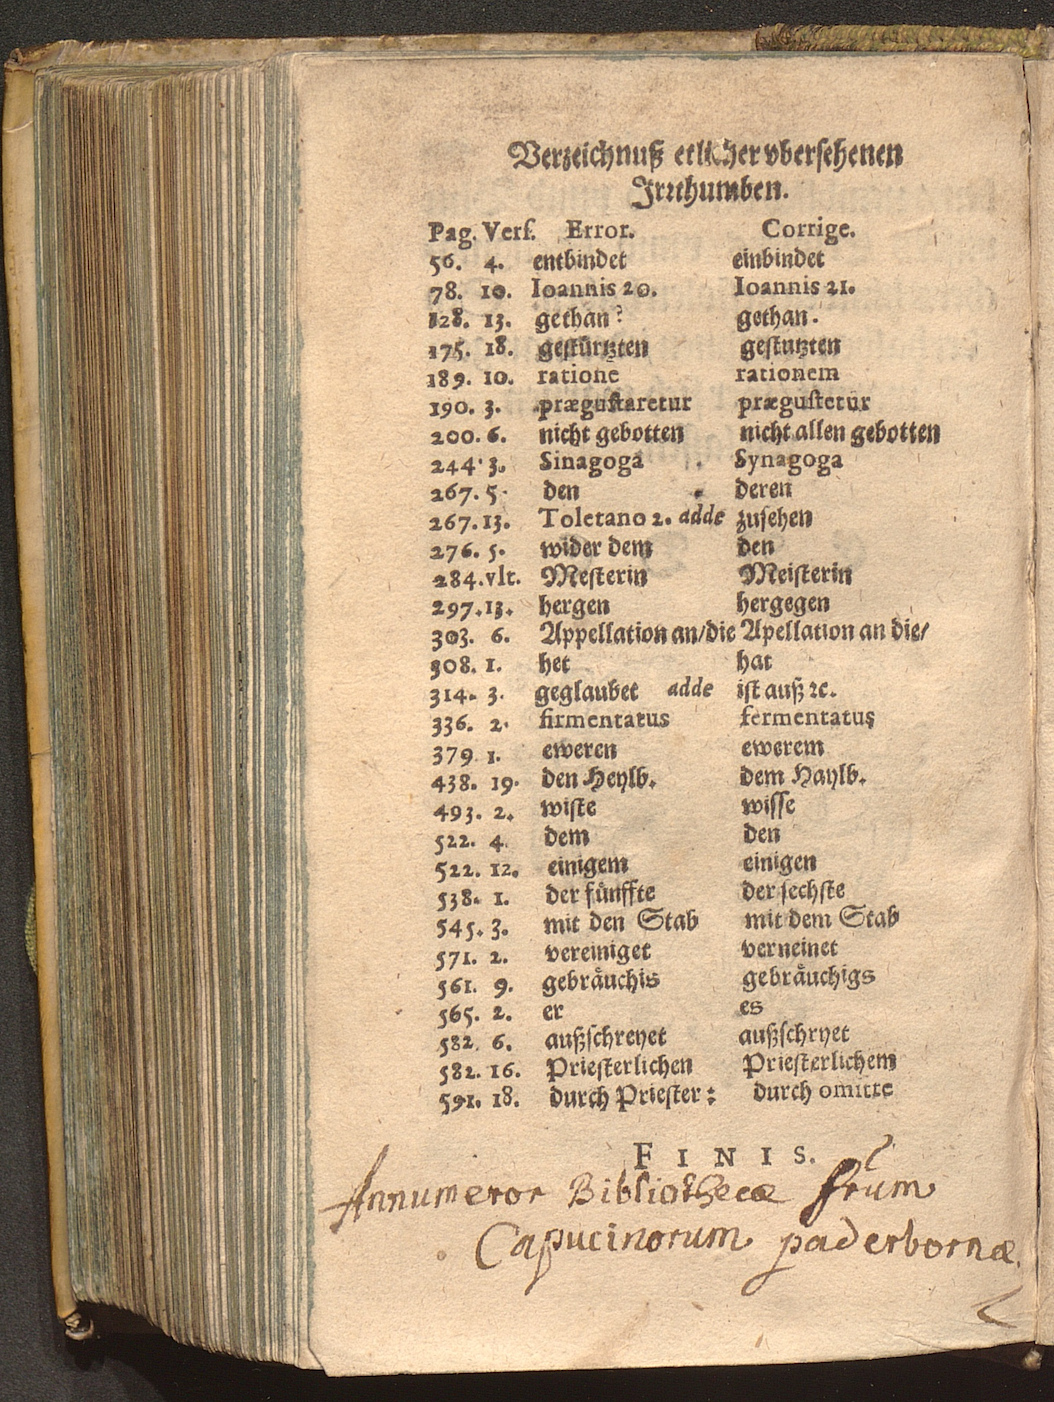 Verzeichnuß etlicher vbersehenen
Irrthumben.
Pag. Vers. Error. Corrige.
56. 4. entbindet einbindet
78. 10. Ioannis 20. Ioannis 21.
128. 13. gethan? gethan.
175. 18. gestürtzten gestutzten
189. 10. ratione rationem
190. 3. prægustaretur prægustetur
200. 6. nicht gebotten nicht allen gebotten
244. 3. Sinagoga Synagoga
267. 5. den deren
267. 13. Toletano 2. adde zusehen
276. 5. wider dem den
284. vlt. Mesterin Meisterin
297. 13. hergen hergegen
303. 6. Appellation an/die Apellation an die/
308. 1. het hat
314. 3. geglaubet adde ist auß ꝛc.
336. 2. firmentatus fermentatus
379. 1. eweren ewerem
438. 19. den Heylb. dem Haylb.
493. 2. wiste wisse
522. 4. dem den
522. 12. einigem einigen
538. 1. der fünffte der sechste
545. 3. mit den Stab mit dem Stab
571. 2. vereiniget verneinet
561. 9. gebräuchis gebräuchigs
565. 2. er es
582. 6. außschreyet außschryet
582. 16. Priesterlichen Priesterlichem
591. 18. durch Priester: durch omitte
FINIS.
Annumeror Bibliothecæ frum
Capucinorum paderbornæ.